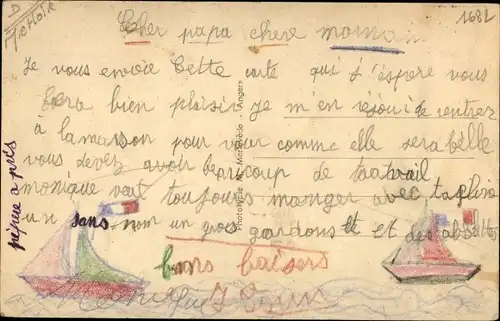 1682
Cher papa chere maman
Je vous envoie Cette carte qui j'espere vous
fera bien plaisir je m'en réjoui de rentrez
à la maison pour vour comme elle sera belle
vous devez avoir beaucoup de travail
monique veut toujours manger avec ta plume
un sans nom un gros garçons et et des
pépine a pris
bons baisers
Monique
Photo
- Angers